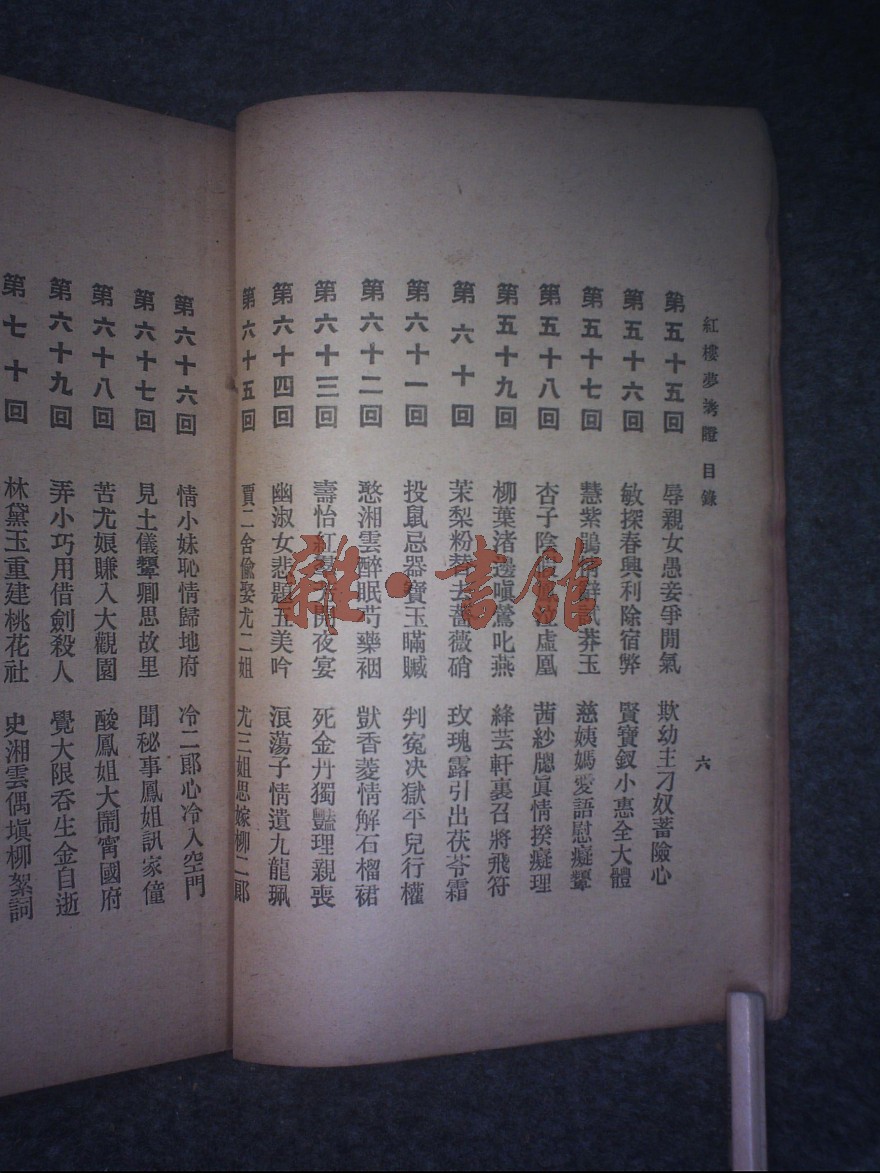 紅樓夢考證 目錄
六
第五十五回 辱親女愚妾爭閒氣 欺幼主刁奴蓄險心
第五十六回 敏探春興利除宿弊 賢寶釵小惠全大體
第五十七回 慧紫鵑情辭試莽玉 慈姨媽愛語慰癡顰
第五十八回 杏子陰虛凰 茜紗牕眞情揆癡理
第五十九回 柳葉渚邊嗔鶯叱燕 絳芸軒裏召將飛符
第六十回 茉梨粉替去薔薇硝 玫瑰露引出茯苓霜
第六十一回 投鼠忌器寶玉瞞贓 判寃決獄平兒行權
第六十二回 憨湘雲醉眠芍藥裀 獃香菱情解石榴裙
第六十三回 壽怡紅開夜宴 死金丹獨豔理親喪
第六十四回 幽淑女悲題五美吟 浪蕩子情遺九龍珮
第六十五回 賈二舍偷娶尤二姐 尤三姐思嫁柳二郞
第六十六回 情小妹恥情歸地府 冷二郞心冷入空門
第六十七回 見土儀顰卿思故里 聞秘事鳳姐訊家僮
第六十八回 苦尤娘賺入大觀園 酸鳳姐大鬧甯國府
第六十九回 弄小巧用借劍殺人 覺大限吞生金自逝
第七十回 林黛玉重建桃花社 史湘雲偶塡柳絮詞
雜·書館